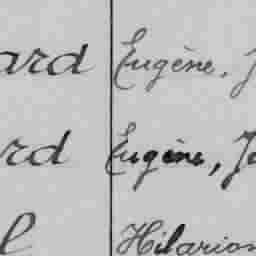 ard Eugène, J
rd Eugène, Jo
l Hilarion